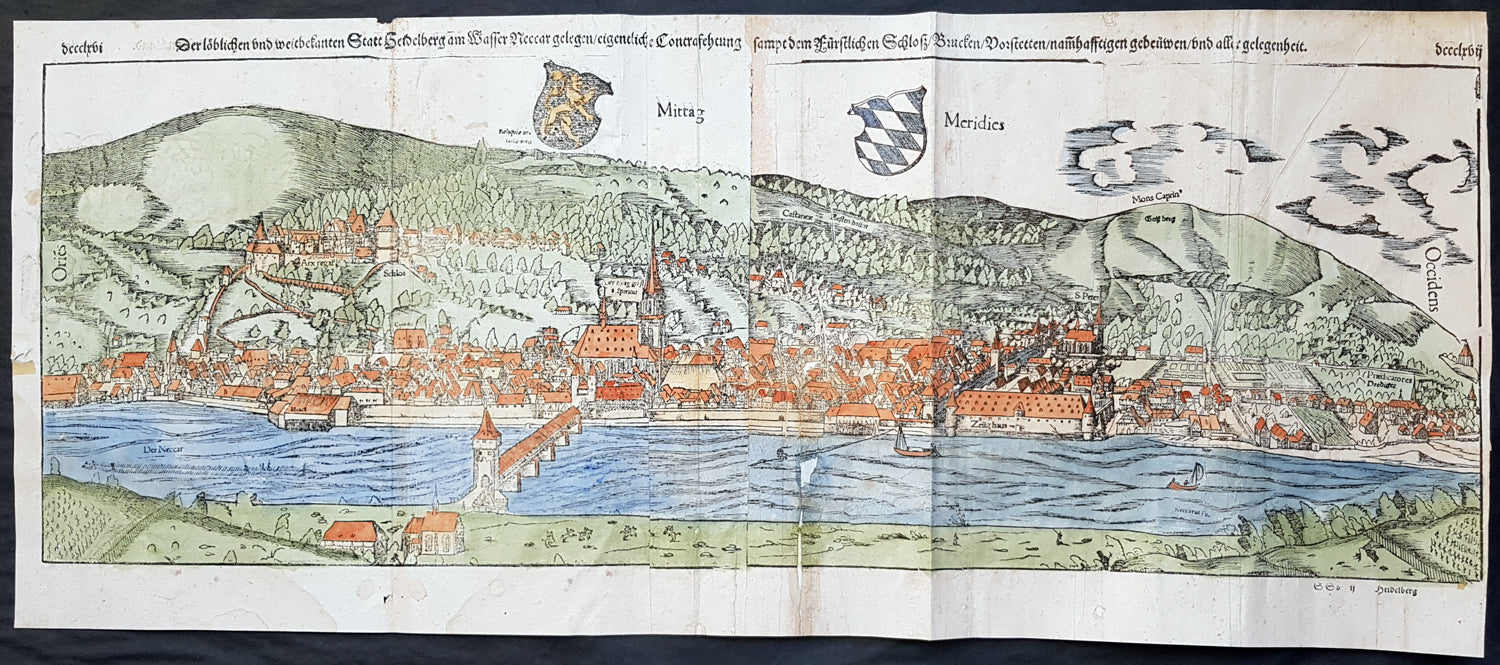 dccclxvi Der löblichen vnd weitbekanten Statt Heidelberg am Wasser Neccar gelegen/eigentliche Contrafehtung sampt dem Fürstlichen Schloß/Brucken/Vorstetten/namhafftigen gebeüwen/vnd aller gelegenheit. dccclxvij
Mittag
Meridies
Mons Caprin⁹
Geißberg
Castanee
Oriēs
Occidens
Arx
Schlos
Spiritus
S. Peter
Predicatores
Prediger
Zeüghaus
Der Neccar
Neccarus Flu.
SSs ij Heidelberg